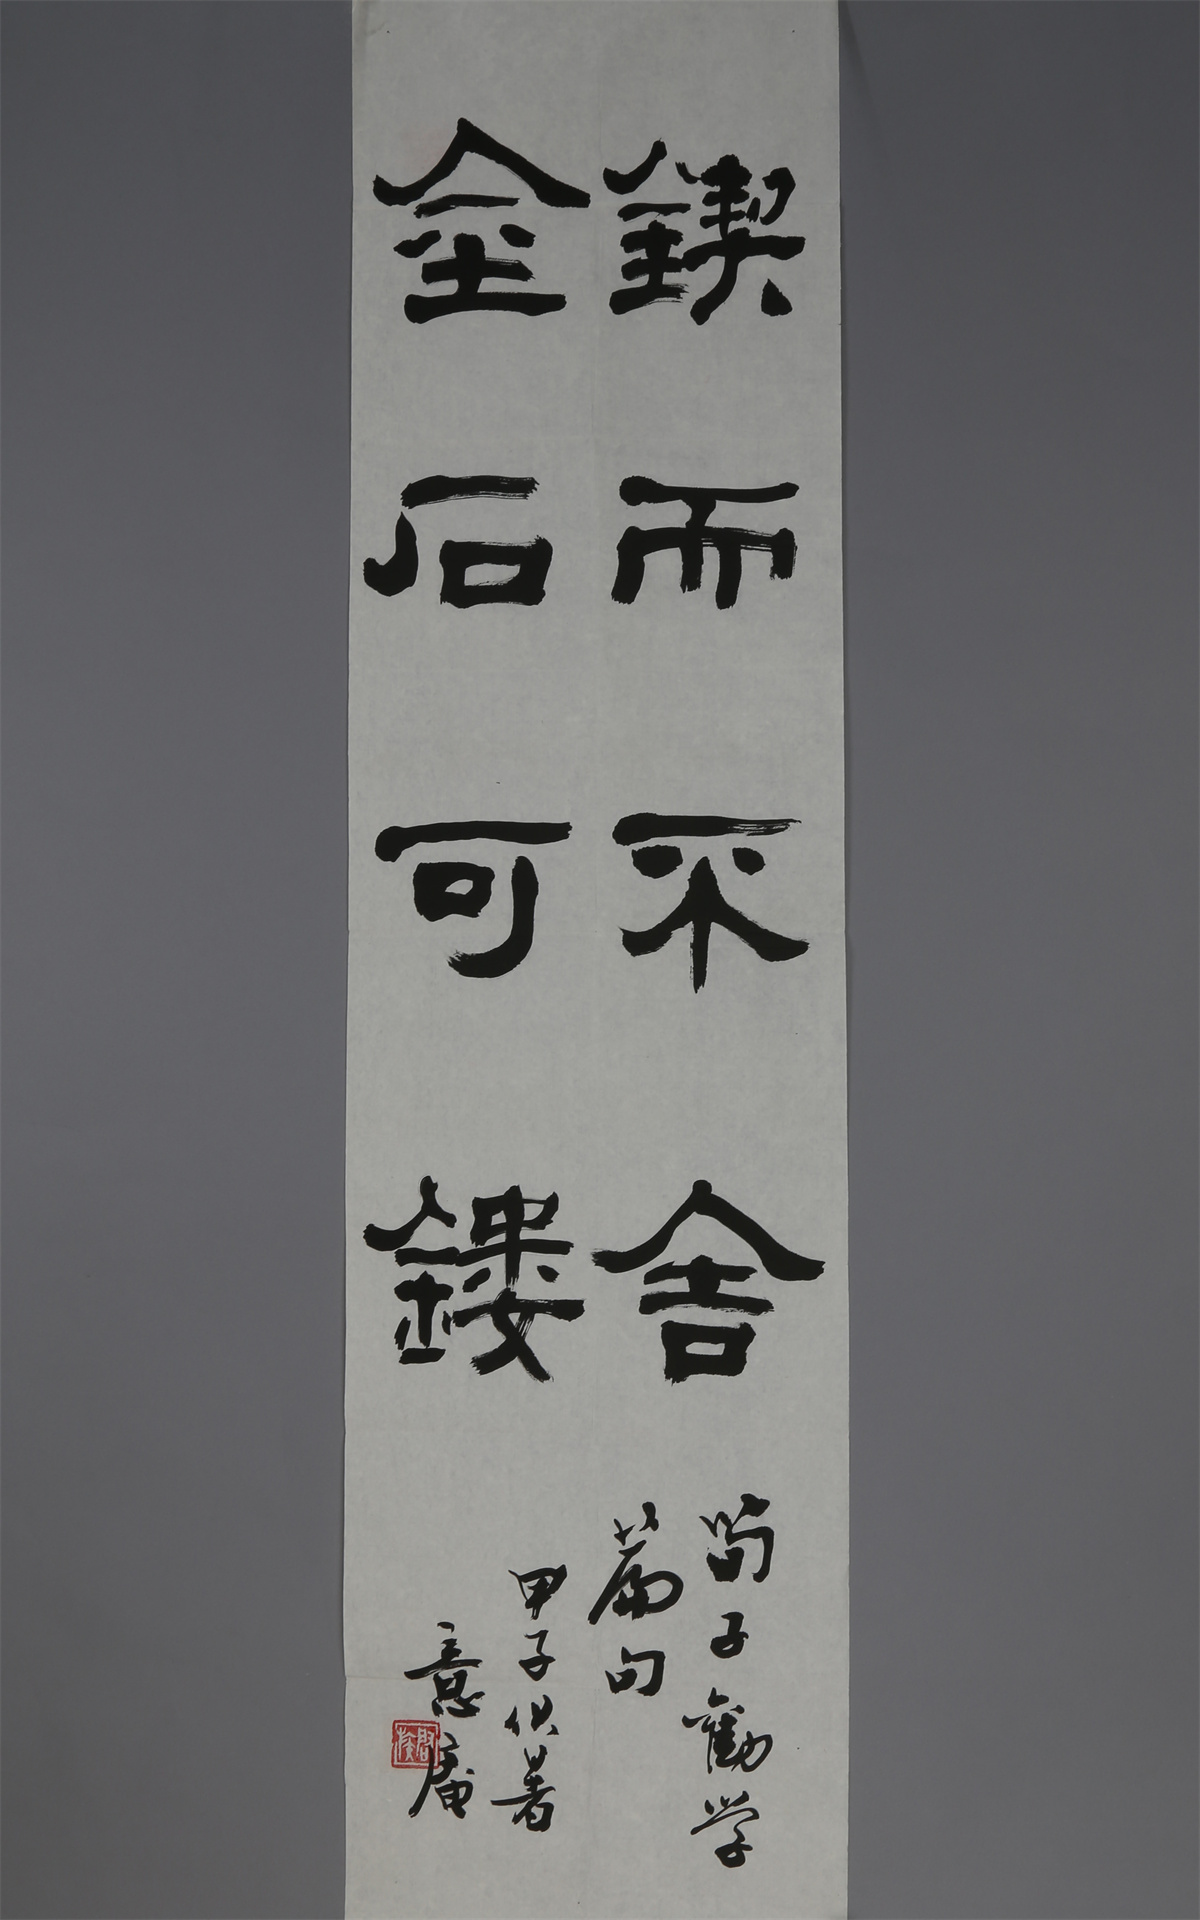 鍥而不舍
金石可鏤
荀子勸学
篇句
甲子伏暑
意庵